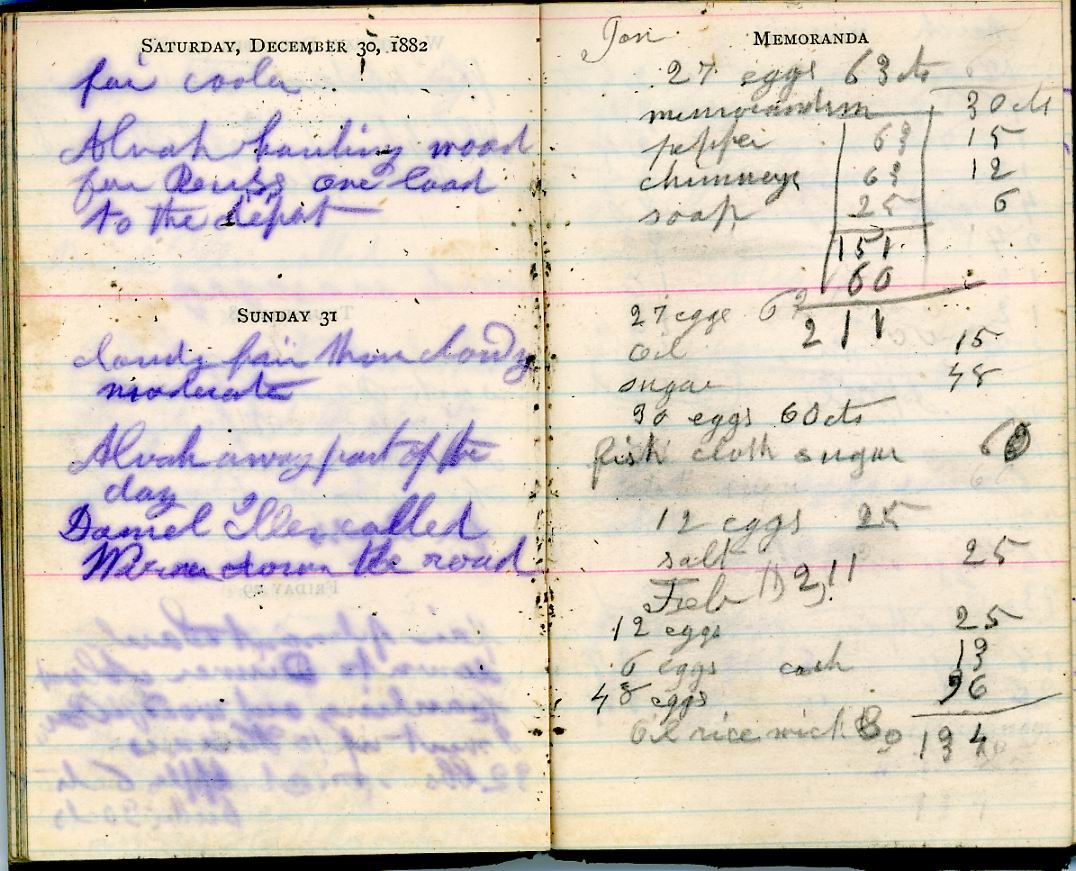 SATURDAY, DECEMBER 30, 1882
fair cooler
Alvah hauling wood
for one load
to the depot
SUNDAY 31
cloudy fair then cloudy
moderate
Alvah away part of the
day
Daniel called
down the road
Jan
MEMORANDA
27 eggs 63 cts
memorandum 30 cts
pepper 63 15
chimneys 63 12
soap 25 6
151
60
27 eggs 63
211
oil 15
sugar 48
30 eggs 60 cts
fish cloth sugar 60
12 eggs 25
salt 25
Feb 211
12 eggs 25
6 eggs cash 13
48 eggs 96
Oil rice wick 80 134